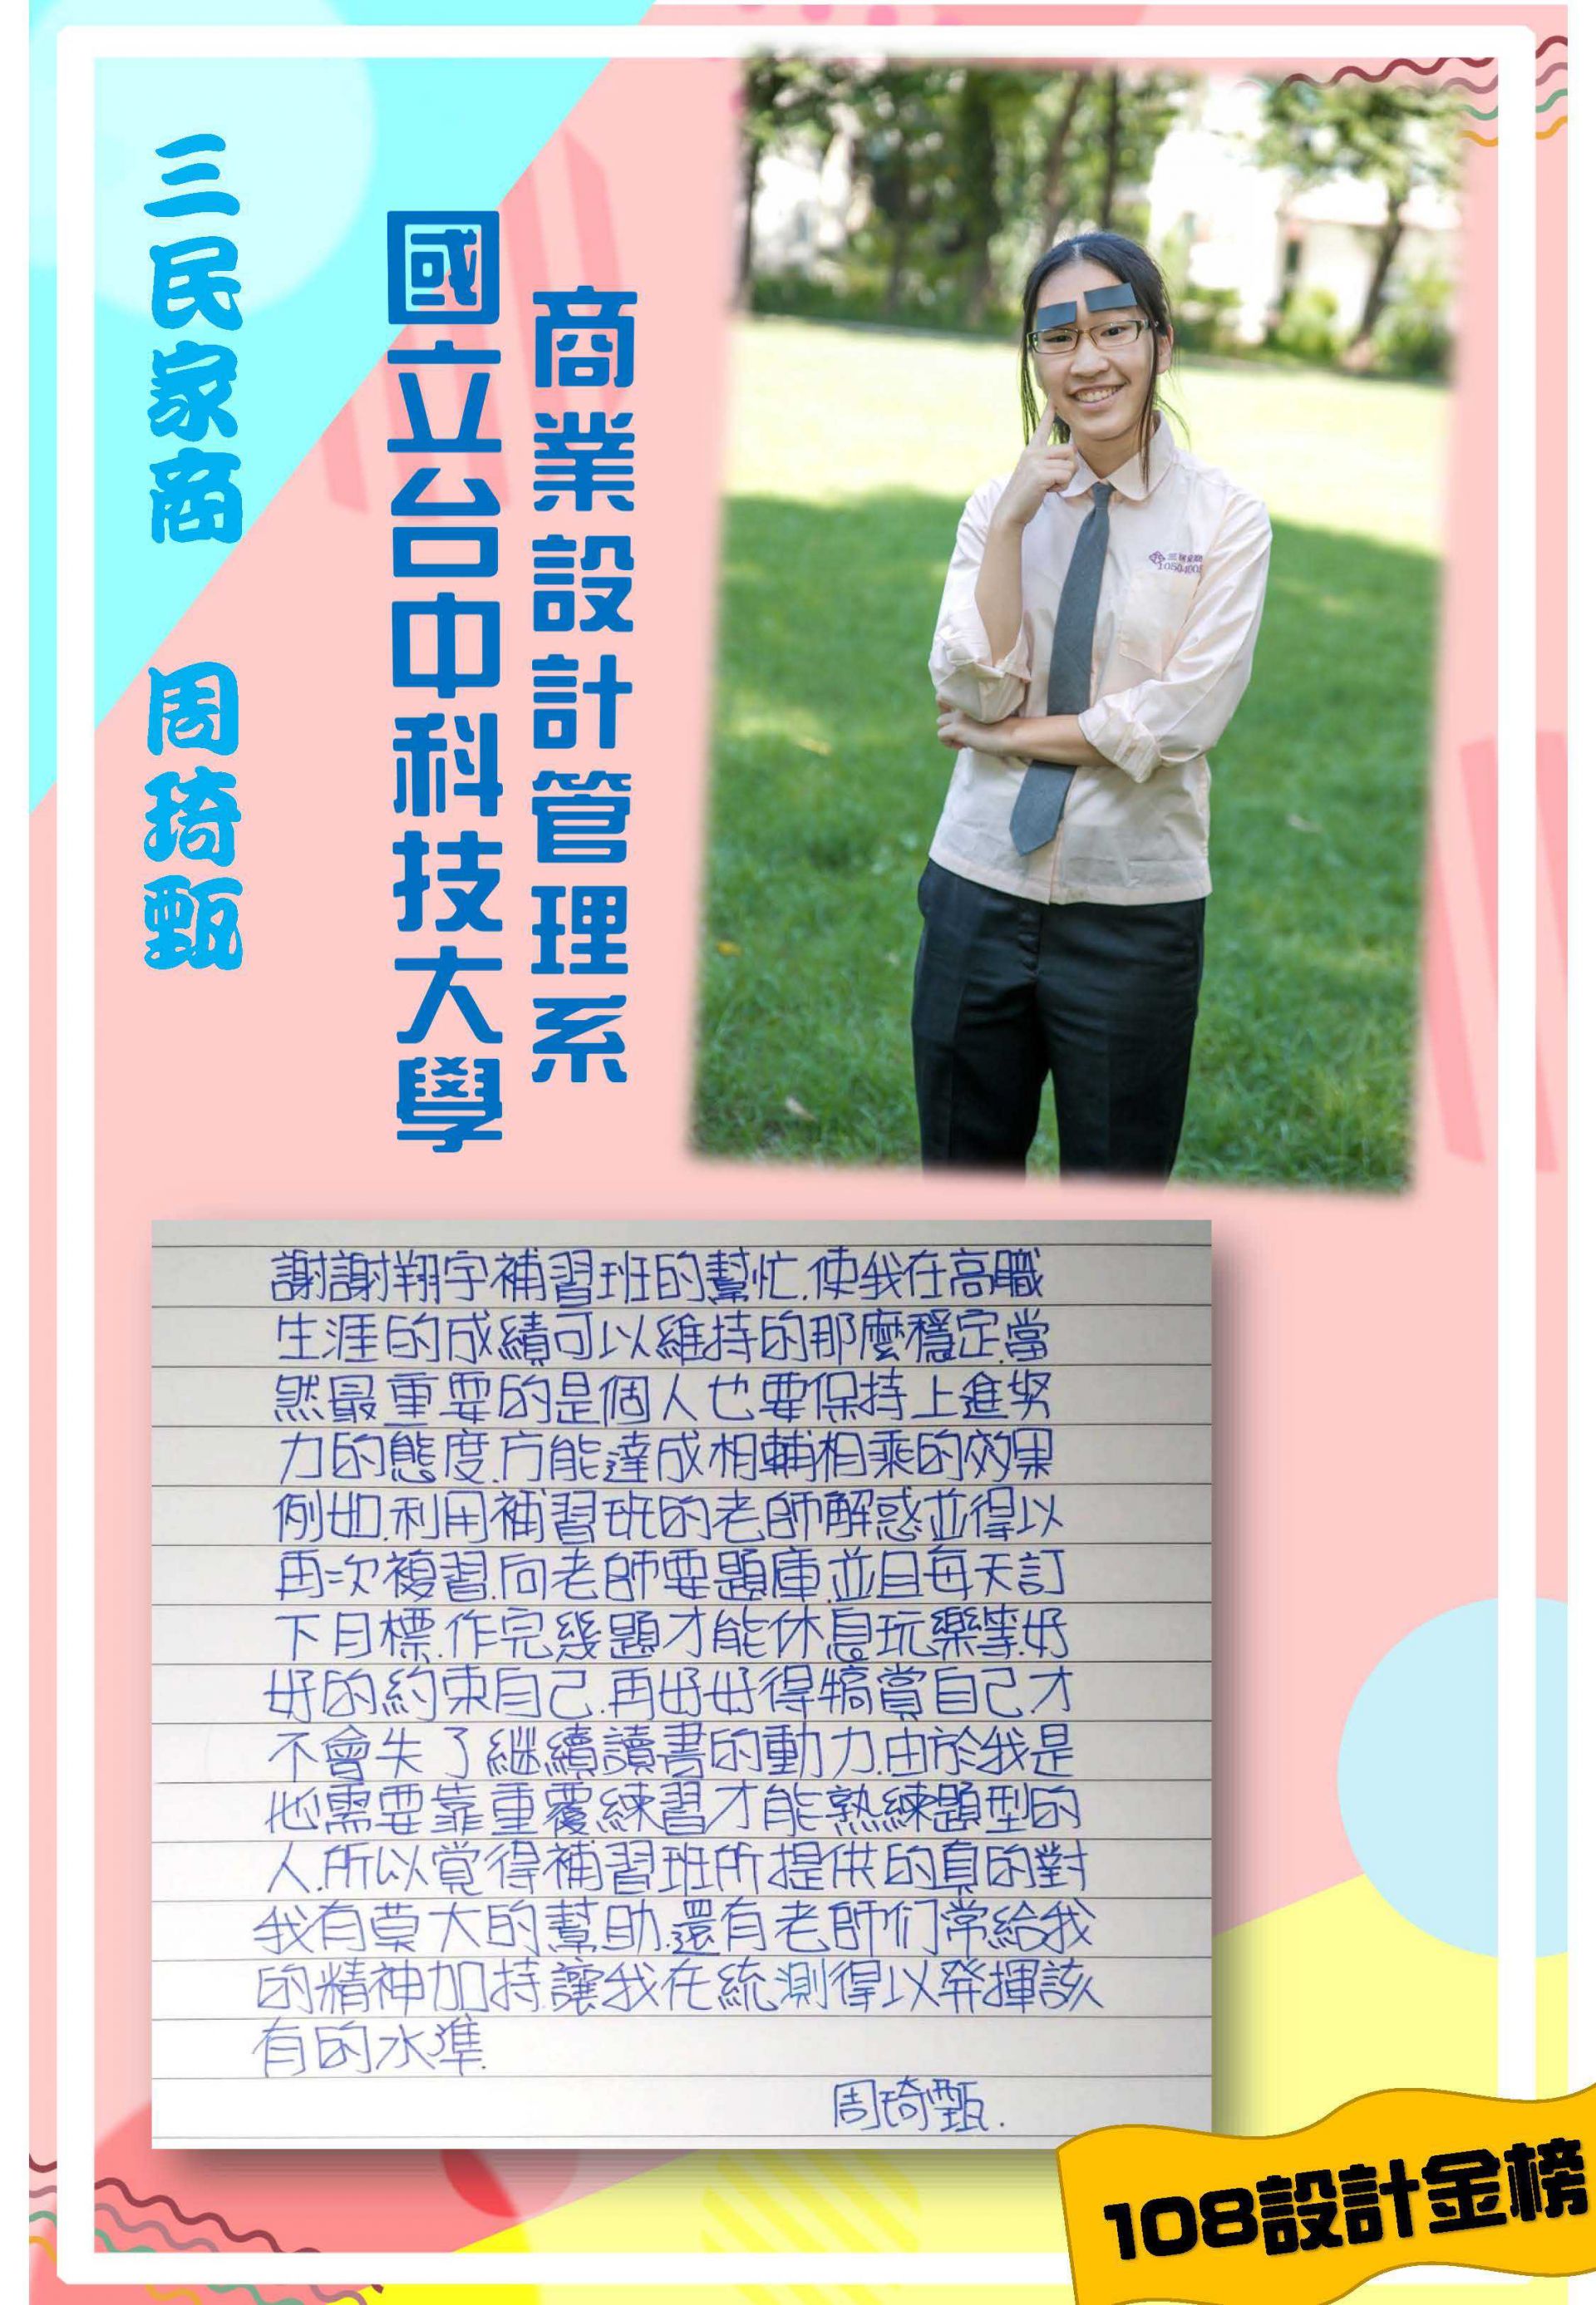 三民家商 周琦甄
國立台中科技大學
商業設計管理系
謝謝翔宇補習班的幫忙.使我在高職
生涯的成績可以維持的那麼穩定.當
然最重要的是個人也要保持上進努
力的態度.方能達成相輔相乘的效果
例如.利用補習班的老師解惑並得以
再次複習.向老師要題庫.並且每天訂
下目標.作完幾題才能休息玩樂等.好
好的約束自己.再好好得犒賞自己才
不會失了繼續讀書的動力.由於我是
也需要靠重覆練習才能熟練題型的
人.所以覺得補習班所提供的真的對
我有莫大的幫助.還有老師们常給我
的精神加持.讓我在統測得以發揮該
有的水準.
周琦甄.
108設計金榜